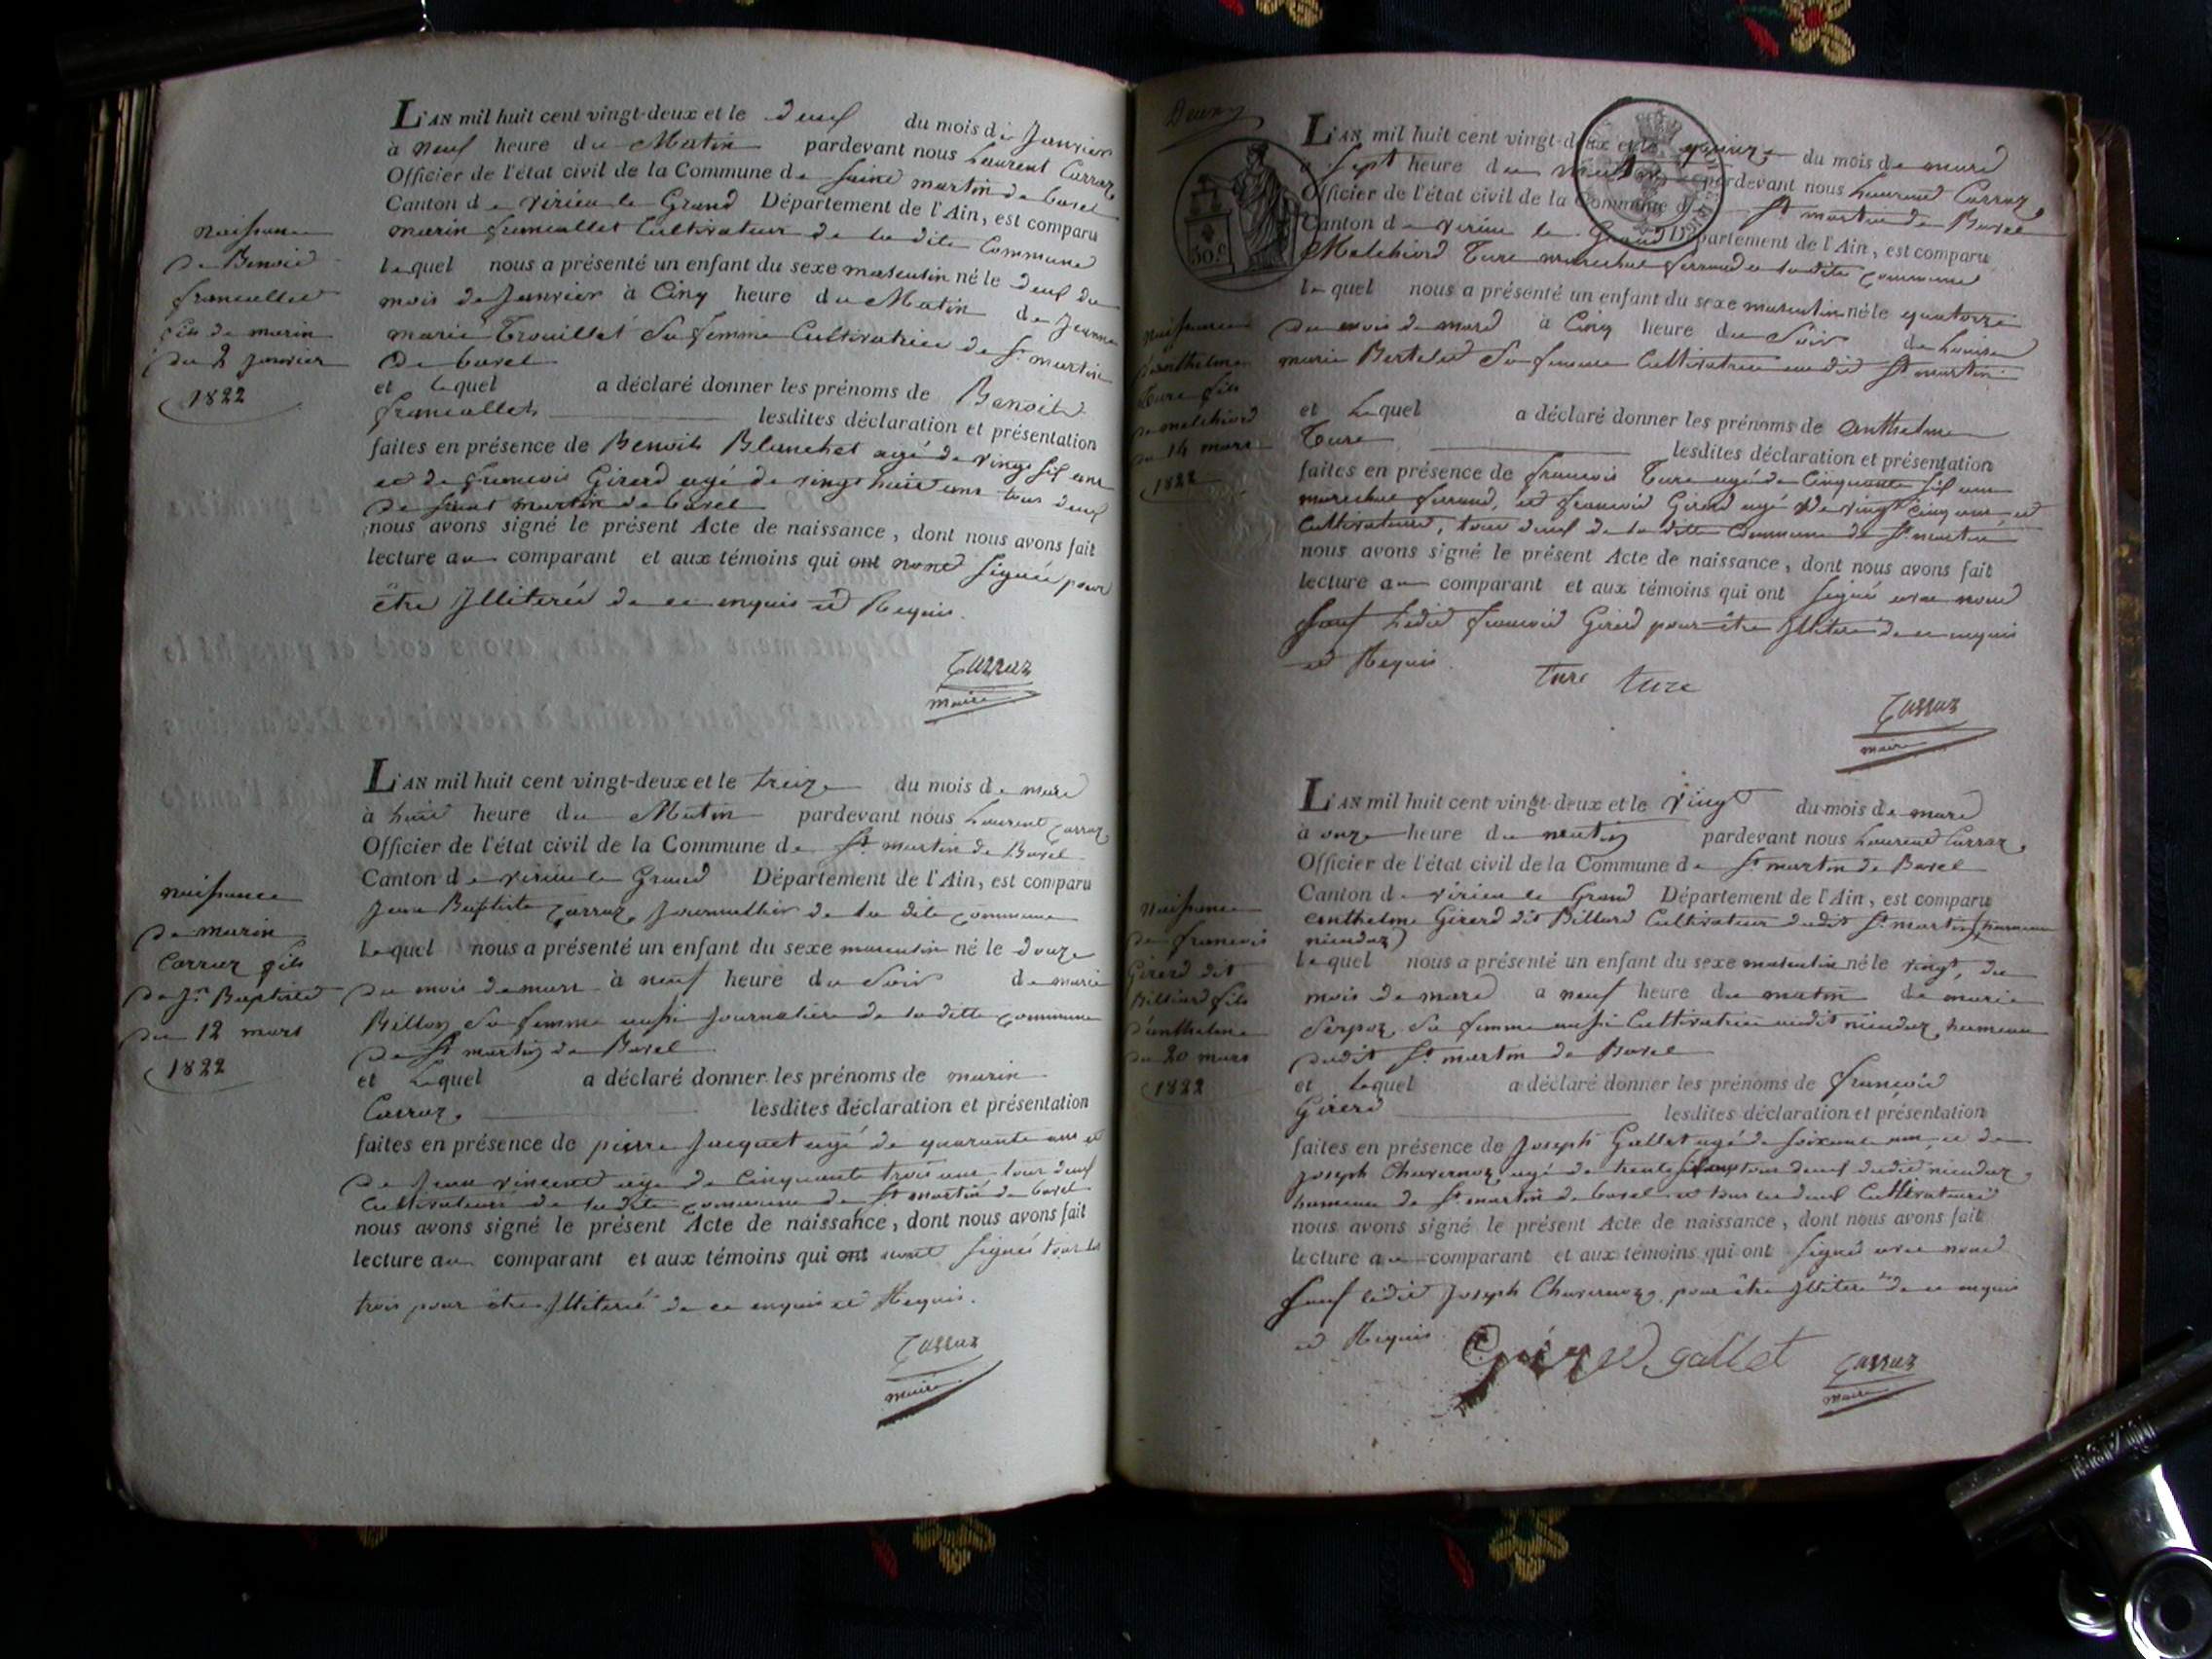 L'AN mil huit cent vingt-deux et le deux du mois de Janvier
à neuf heure du Matin pardevant nous Laurent Carraz
Officier de l'état civil de la Commune de saint martin de bavel
Canton de virieu le Grand Département de l'Ain, est comparu
marin francallet Cultivateur de la dite Commune
lequel nous a présenté un enfant du sexe masculin né le deux du
mois de Janvier à Cinq heure du Matin de Jeanne
marie Trouillet sa femme Cultivatrice de St martin
de bavel
et lequel a déclaré donner les prénoms de Benoit
francallet lesdites déclaration et présentation
faites en présence de Benoit Blanchet agé de vingt six ans
et de francois Girerd agé de vingt huit ans tous deux
de saint martin de bavel
nous avons signé le présent Acte de naissance, dont nous avons fait
lecture au comparant et aux témoins qui ont nont signés pour
être Illiterés de ce enquis et Requis.
Carraz
maire
naissance
de Benoit
francallet
fils de marin
du 2 janvier
1822
L'AN mil huit cent vingt-deux et le treize du mois de mars
à huit heure du Matin pardevant nous Laurent Carraz
Officier de l'état civil de la Commune de St martin de Bavel
Canton de virieu le Grand Département de l'Ain, est comparu
Jean Baptiste Carraz, Journallier de la dite commune
lequel nous a présenté un enfant du sexe masculin né le douze
du mois de mars à neuf heure du Soir de marie
Billon sa femme aussi Journalière de la ditte commune
de St martin de Bavel
et lequel a déclaré donner les prénoms de marin
Carraz. lesdites déclaration et présentation
faites en présence de pierre Jacquet agé de quarante ans et
de Jean vincent agé de Cinquante trois ans tous deux
Cultivateurs de la dite commune de St martin de bavel
nous avons signé le présent Acte de naissance, dont nous avons fait
lecture au comparant et aux témoins qui ont nont signés tous les
trois pour être Illiterés de ce enquis et Requis.
Carraz
maire
naissance
de marin
Carraz fils
de Jn Baptiste
du 12 mars
1822
50.c
L'AN mil huit cent vingt-deux et le quinze du mois de mars
à sept heure du matin pardevant nous Laurent Carraz
Officier de l'état civil de la Commune de St martin de Bavel
Canton de virieu le Grand Département de l'Ain, est comparu
Melchiord Ture marechal ferrand de la dite commune
lequel nous a présenté un enfant du sexe masculin né le quatorze
du mois de mars à Cinq heure du Soir de Louise
marie Bertelet sa femme Cultivatrice audit St martin
et lequel a déclaré donner les prénoms de anthelme
Ture lesdites déclaration et présentation
faites en présence de francois Ture agé de Cinquante six ans
marechal ferrand, et francois Girerd agé de vingt cinq ans et
Cultivateurs, tous deux de la ditte Commune de St martin
nous avons signé le présent Acte de naissance, dont nous avons fait
lecture au comparant et aux témoins qui ont signés avec nous
sauf ledit francois Girerd pour être Illiteré de ce enquis
et Requis.
Ture Ture
Carraz
maire
naissance
d'anthelme
Ture fils
de melchiord
du 14 mars
1822
L'AN mil huit cent vingt-deux et le vingt du mois de mars
à onze heure du matin pardevant nous Laurent Carraz
Officier de l'état civil de la Commune de St martin de Bavel
Canton de virieu le Grand Département de l'Ain, est comparu
anthelme Girerd dit Billiard Cultivateur dudit St martin (hameau
niendaz)
lequel nous a présenté un enfant du sexe masculin né le vingt, du
mois de mars à neuf heure du matin de marie
Serpoz, sa femme aussi Cultivatrice audit niendaz hameau
dudit St martin de Bavel
et lequel a déclaré donner les prénoms de francois
Girerd lesdites déclaration et présentation
faites en présence de Joseph Gallet agé de soixante ans, et de
Joseph Chavernoz, agé de trente tous deux dudit niendaz
hameau de St martin de bavel et tous les deux Cultivateurs
nous avons signé le présent Acte de naissance, dont nous avons fait
lecture au comparant et aux témoins qui ont signés avec nous
sauf ledit Joseph Chavernoz, pour être Illiteré de ce enquis
et Requis
Girerd gallet
Carraz
maire
naissance
de francois
Girerd dit
Billiard fils
d'anthelme
du 20 mars
1822